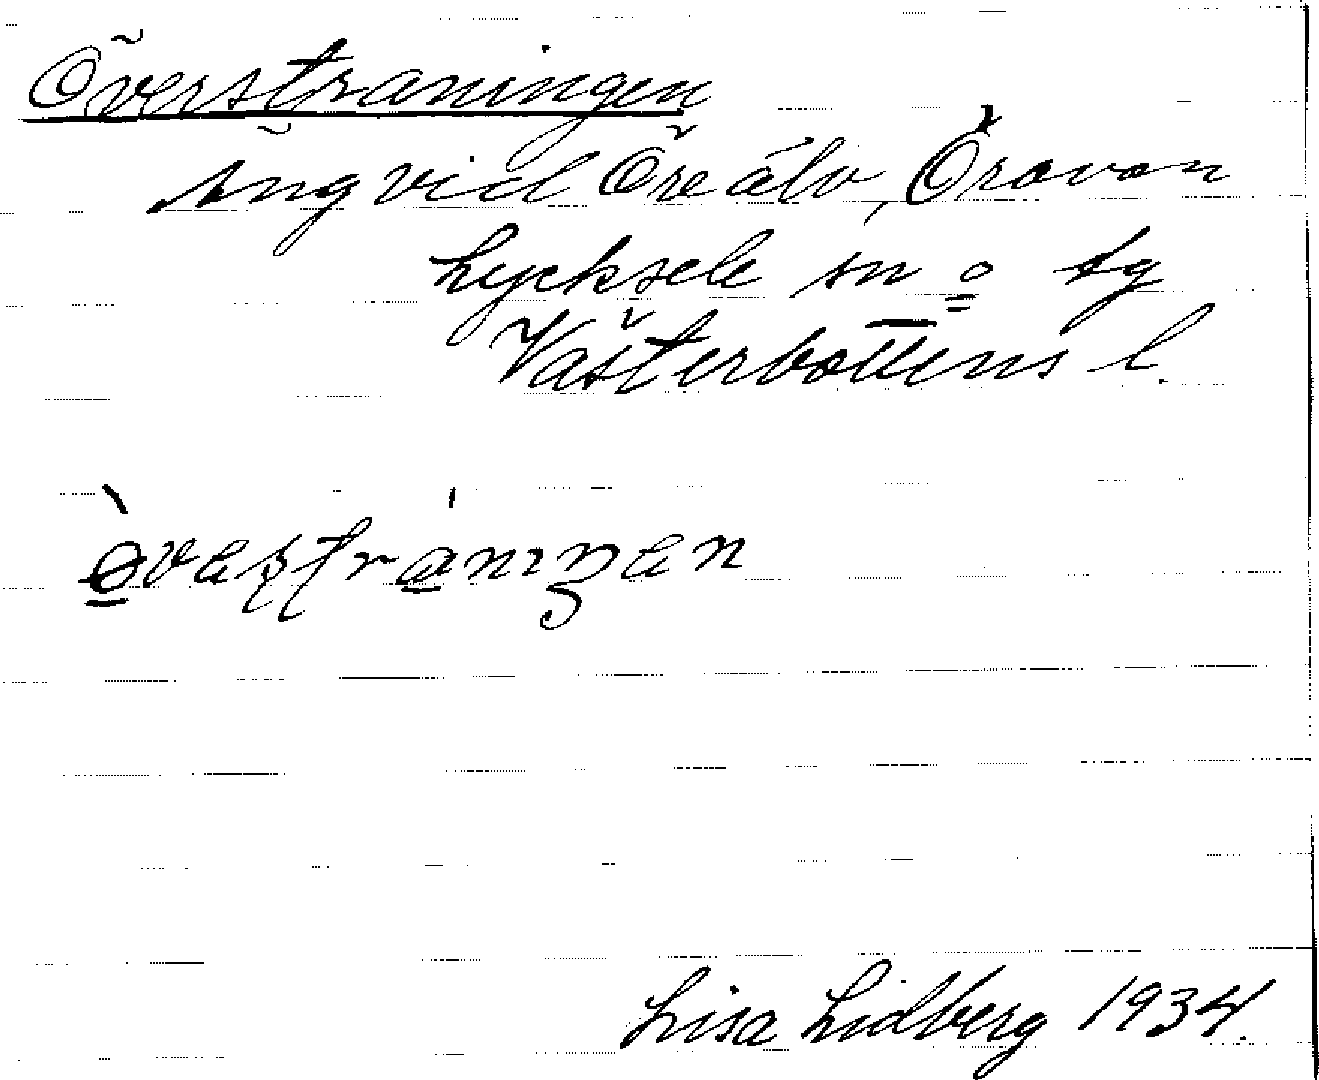 Överstraningen
Äng vid Öreälv, Öravan
Lycksele sn o tg
Västerbottens l.
òvaʂʈránıŋan
Lisa Lidberg 1934.